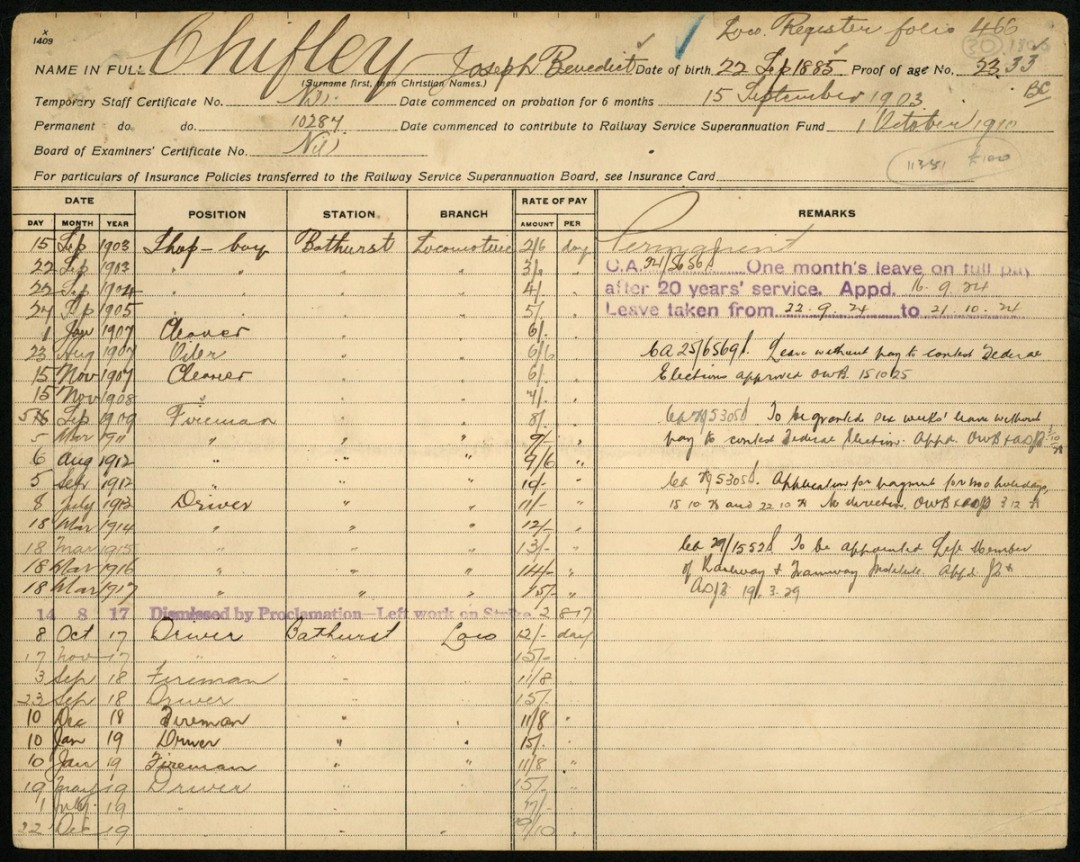 x
1409
Loco. Register folio 466
NAME IN FULL Chifley Joseph Benedict Date of birth 22 Sep 1885 Proof of age No. 2333
(Surname first, then Christian Names.)
BC
Temporary Staff Certificate No. Nil Date commenced on probation for 6 months 15 September 1903
Permanent do. do. 10287 Date commenced to contribute to Railway Service Superannuation Fund 1 October 1910
Board of Examiners' Certificate No. Nil
For particulars of Insurance Policies transferred to the Railway Service Superannuation Board, see Insurance Card
DATE POSITION STATION BRANCH RATE OF PAY REMARKS
DAY MONTH YEAR AMOUNT PER
15 Sep 1903 Shop-boy Bathurst Locomotive 2/6 day Permanent
22 Sep 1903 " " " 3/- " C.A. 24/5656 One month's leave on full pay
22 Sep 1904 " " " 4/- " after 20 years' service. Appd. 16.9.24
24 Sep 1905 5/- Leave taken from 22.9.24 to 21.10.24
1 Jan 1907 Cleaver 6/-
23 Aug 1907 Oiler 6/6 " CA 25/6569 Leave without pay to contest Federal
15 Nov 1907 Cleaver 6/- Elections approved OWB. 15 10 25
15 Nov 1908 " 7/-
5 Sep 1909 Fireman 8/- To be granted six weeks' leave without
5 Mar 1911 " " " 9/- " pay to contest Federal Election. Appd. OWB
6 Aug 1912 " " " 9/6 "
5 Sep 1912 " " " 10/- " Application for payment for two holidays,
8 July 1913 Driver " " 11/- " 15 10 and 22 10 No direction. OWB
18 Mar 1914 " " " 12/- "
18 Mar 1915 " " " 13/- " CA 29/1552 To be appointed Life Member
18 Mar 1916 " " " 14/- " of Railway & Tramway Institute. Appd
18 Mar 1917 " " " 15/- " 19.3.29
14 8 17 Dismissed by Proclamation—Left work on Strike. 2 8 17
8 Oct 17 Driver Bathurst Loco 12/- day
17 Nov 17 " 15/-
3 Sep 18 Fireman 11/8
23 Sep 18 Driver 15/-
10 Dec 18 Fireman " " 11/8 "
10 Jan 19 Driver " " 15/- "
10 Jan 19 Fireman " " 11/8 "
19 May 19 Driver 15/-
1 July 19 "
22 Dec 19